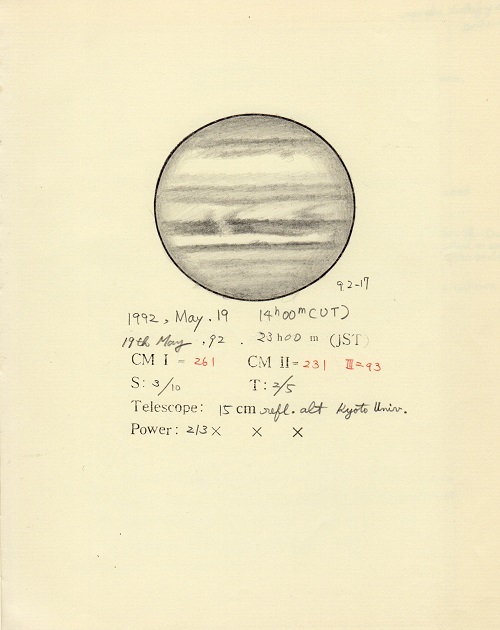 92-17
1992, May. 19 14h00m(UT)
19th May , 92 . 23h00 m (JST)
CM I = 261 CM II= 231 III=93
S: 3/10 T: 2/5
Telescope: 15 cm refl. alt Kyoto Univ.
Power: 213× × ×